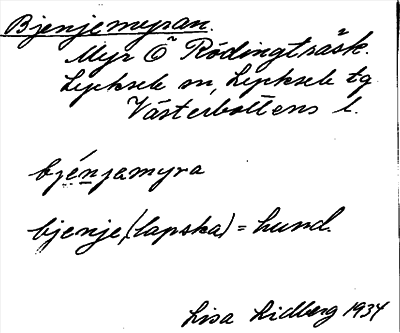 Bjenjemyran.
Myr Ö Rödingträsk.
Lycksele sn, Lycksele tg
Västerbottens l.
bjénjamyra
bjenje (lapska) = hund.
Lisa Lidberg 1934